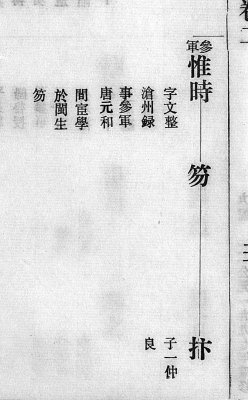 卷二
參軍
惟時
字文整
滄州録
事參軍
唐元和
間宦學
於閩生
笏
笏
抃
子一仲
良